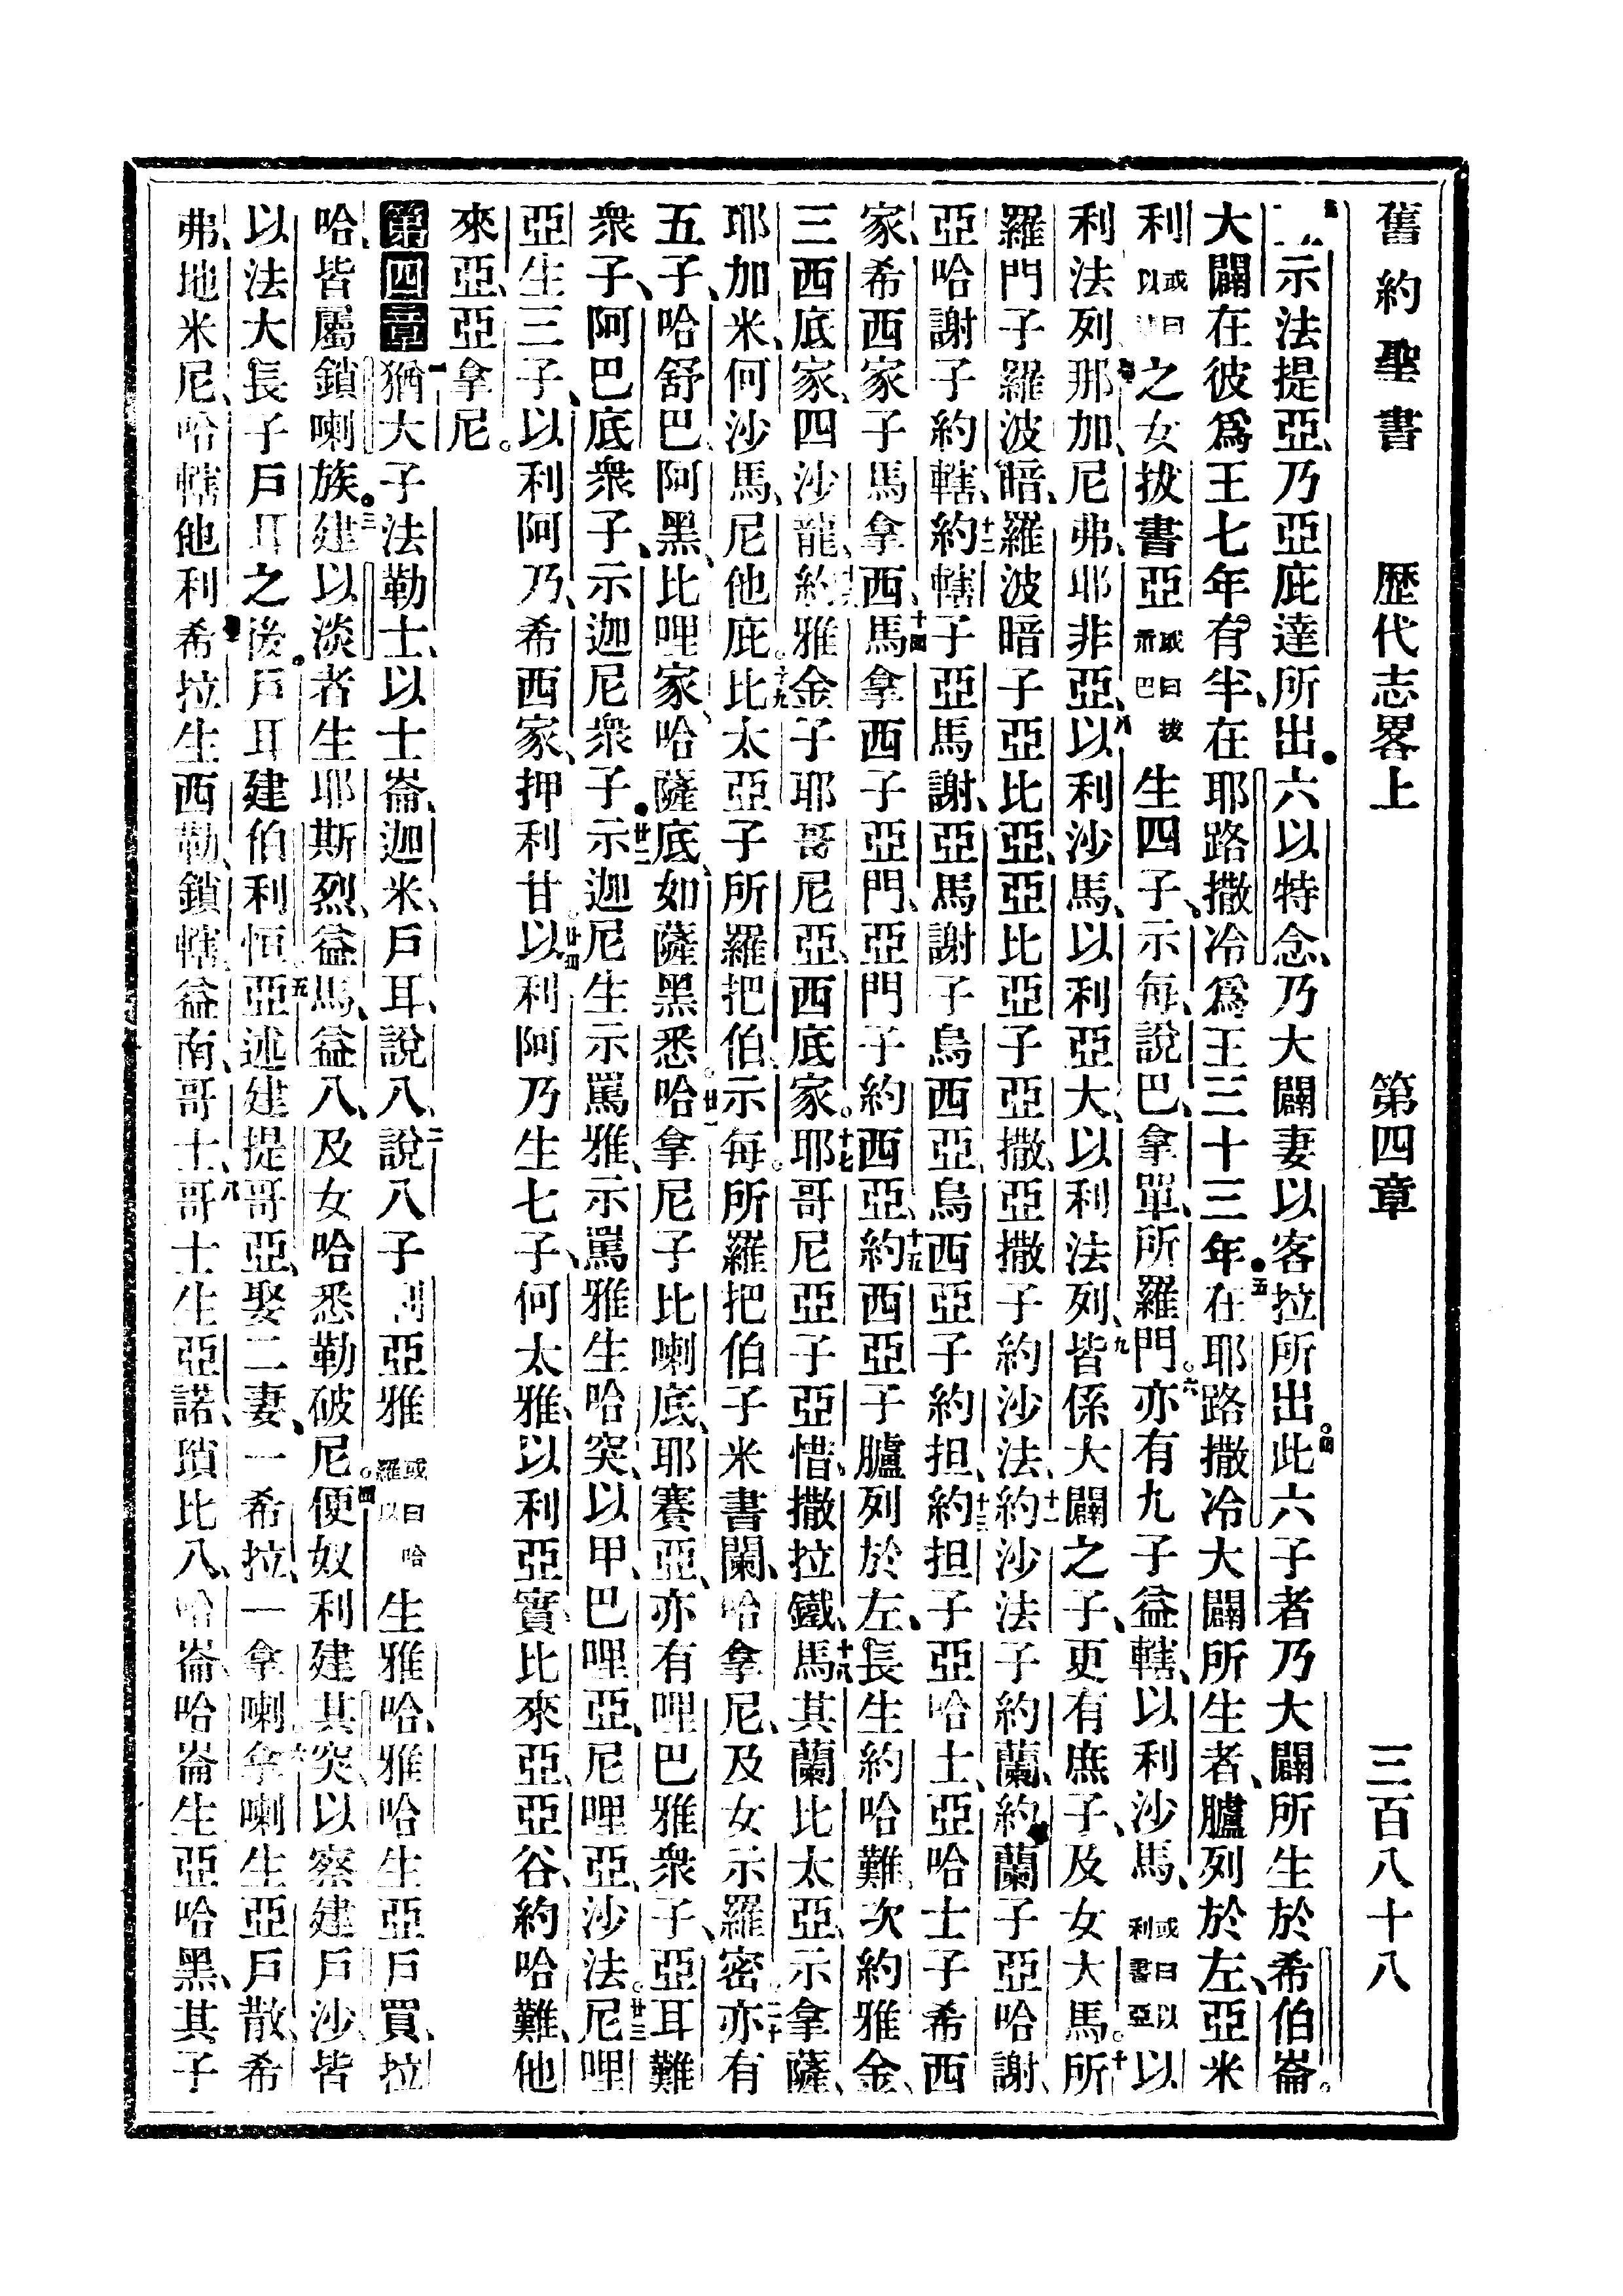 舊約聖書 歷代志畧上 第四章 三百八十八
示法提亞、乃亞庇達所出、六以特念、乃大闢妻以客拉所出。四此六子者乃大闢所生於希伯崙。
大闢在彼爲王七年有半、在耶路撒冷爲王三十三年。五在耶路撒冷大闢所生者、臚列於左、亞米
利或曰以之女拔書亞或曰拔示巴生四子、示每、說巴、拿單、所羅門。六亦有九子益轄、以利沙馬、或曰以利書亞以
利法列、那加、尼弗、耶非亞、八以利沙馬、以利亞大、以利法列、九皆係大闢之子、更有庶子、及女大馬。十所
羅門子羅波暗、羅波暗子亞比亞、亞比亞子亞撒、亞撒子約沙法、十一約沙法子約蘭、約蘭子亞哈謝、
亞哈謝子約轄、十二約轄子亞馬謝、亞馬謝子烏西亞、烏西亞子約担、十三約担子亞哈士、亞哈士子希西
家、希西家子馬拿西、十四馬拿西子亞門、亞門子約西亞、十五約西亞子臚列於左、長生約哈難、次約雅金、
三西底家、四沙龍、約雅金子耶哥尼亞、西底家。十七耶哥尼亞子亞惜、撒拉鐵、十八馬其蘭、比太亞、示拿薩、
耶加米、何沙馬、尼他庇。十九比太亞子所羅把伯、示每。所羅把伯子米書闌、哈拿尼、及女示羅密。二十亦有
五子、哈舒巴、阿黑、比哩家、哈薩底、如薩黑悉。廿一哈拿尼子比喇底、耶賽亞、亦有哩巴雅衆子、亞耳難
衆子、阿巴底衆子、示迦尼衆子。廿二示迦尼生示罵雅、示罵雅生哈突、以甲、巴哩亞、尼哩亞、沙法。廿三尼哩
亞生三子、以利阿乃、希西家、押利甘。廿四以利阿乃生七子、何太雅、以利亞實、比來亞、亞谷、約哈難、他
來亞、亞拿尼。
第四章 一猶大子法勒士、以士崙、迦米、戶耳、說八、二說八子亞雅或曰哈羅以生雅哈、雅哈生亞戶買、拉
哈、皆屬鎖喇族。三建以淡者生耶斯烈、益馬、益八、及女哈悉勒破尼。四便奴利建其突、以察建戶沙、皆
以法大長子戶耳之後。戶耳建伯利恒、五亞述建提哥亞、娶二妻、一希拉、一拿喇、六拿喇生亞戶散、希
弗、地米尼、哈轄他利、希拉生西勒、鎖轄、益南、哥士、八哥士生亞諾、瑣比八、哈崙、哈崙生亞哈黑、其子